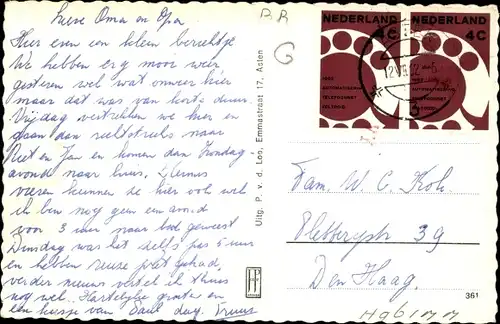 Lieve Oma en Opa
Hier even een klein berichtje
We hebben erg mooi weer
gisteren wel wat onweer hier
maar dat was van korte duur.
Vrijdag vertrekken we hier en
gaan dan rechtstreeks naar
Piet en Jan en komen dan Zondag-
avond naar huis.
vieren kunnen ze hier ook wel
ik ben nog geen een avond
voor 3 uur naar bed geweest
Dinsdag was het zelfs 5 uur
en hebben reuze pret gehad,
verder nieuws vertel ik thuis
nog wel. Hartelijke groeten en
een kusje van Paul dag. Truus
P.R
G
Uitg. P. v. d. Loo, Emmastraat 17, Asten
NEDERLAND
4C
NEDERLAND
4C
1962
AUTOMATISERING
TELEFOONNET
VOLTOOID
AUTOMATISERING
TELEFOONNET
VOLTOOID
Fam. W. C. Kok.
Pletterijstr 39
Den Haag.
361